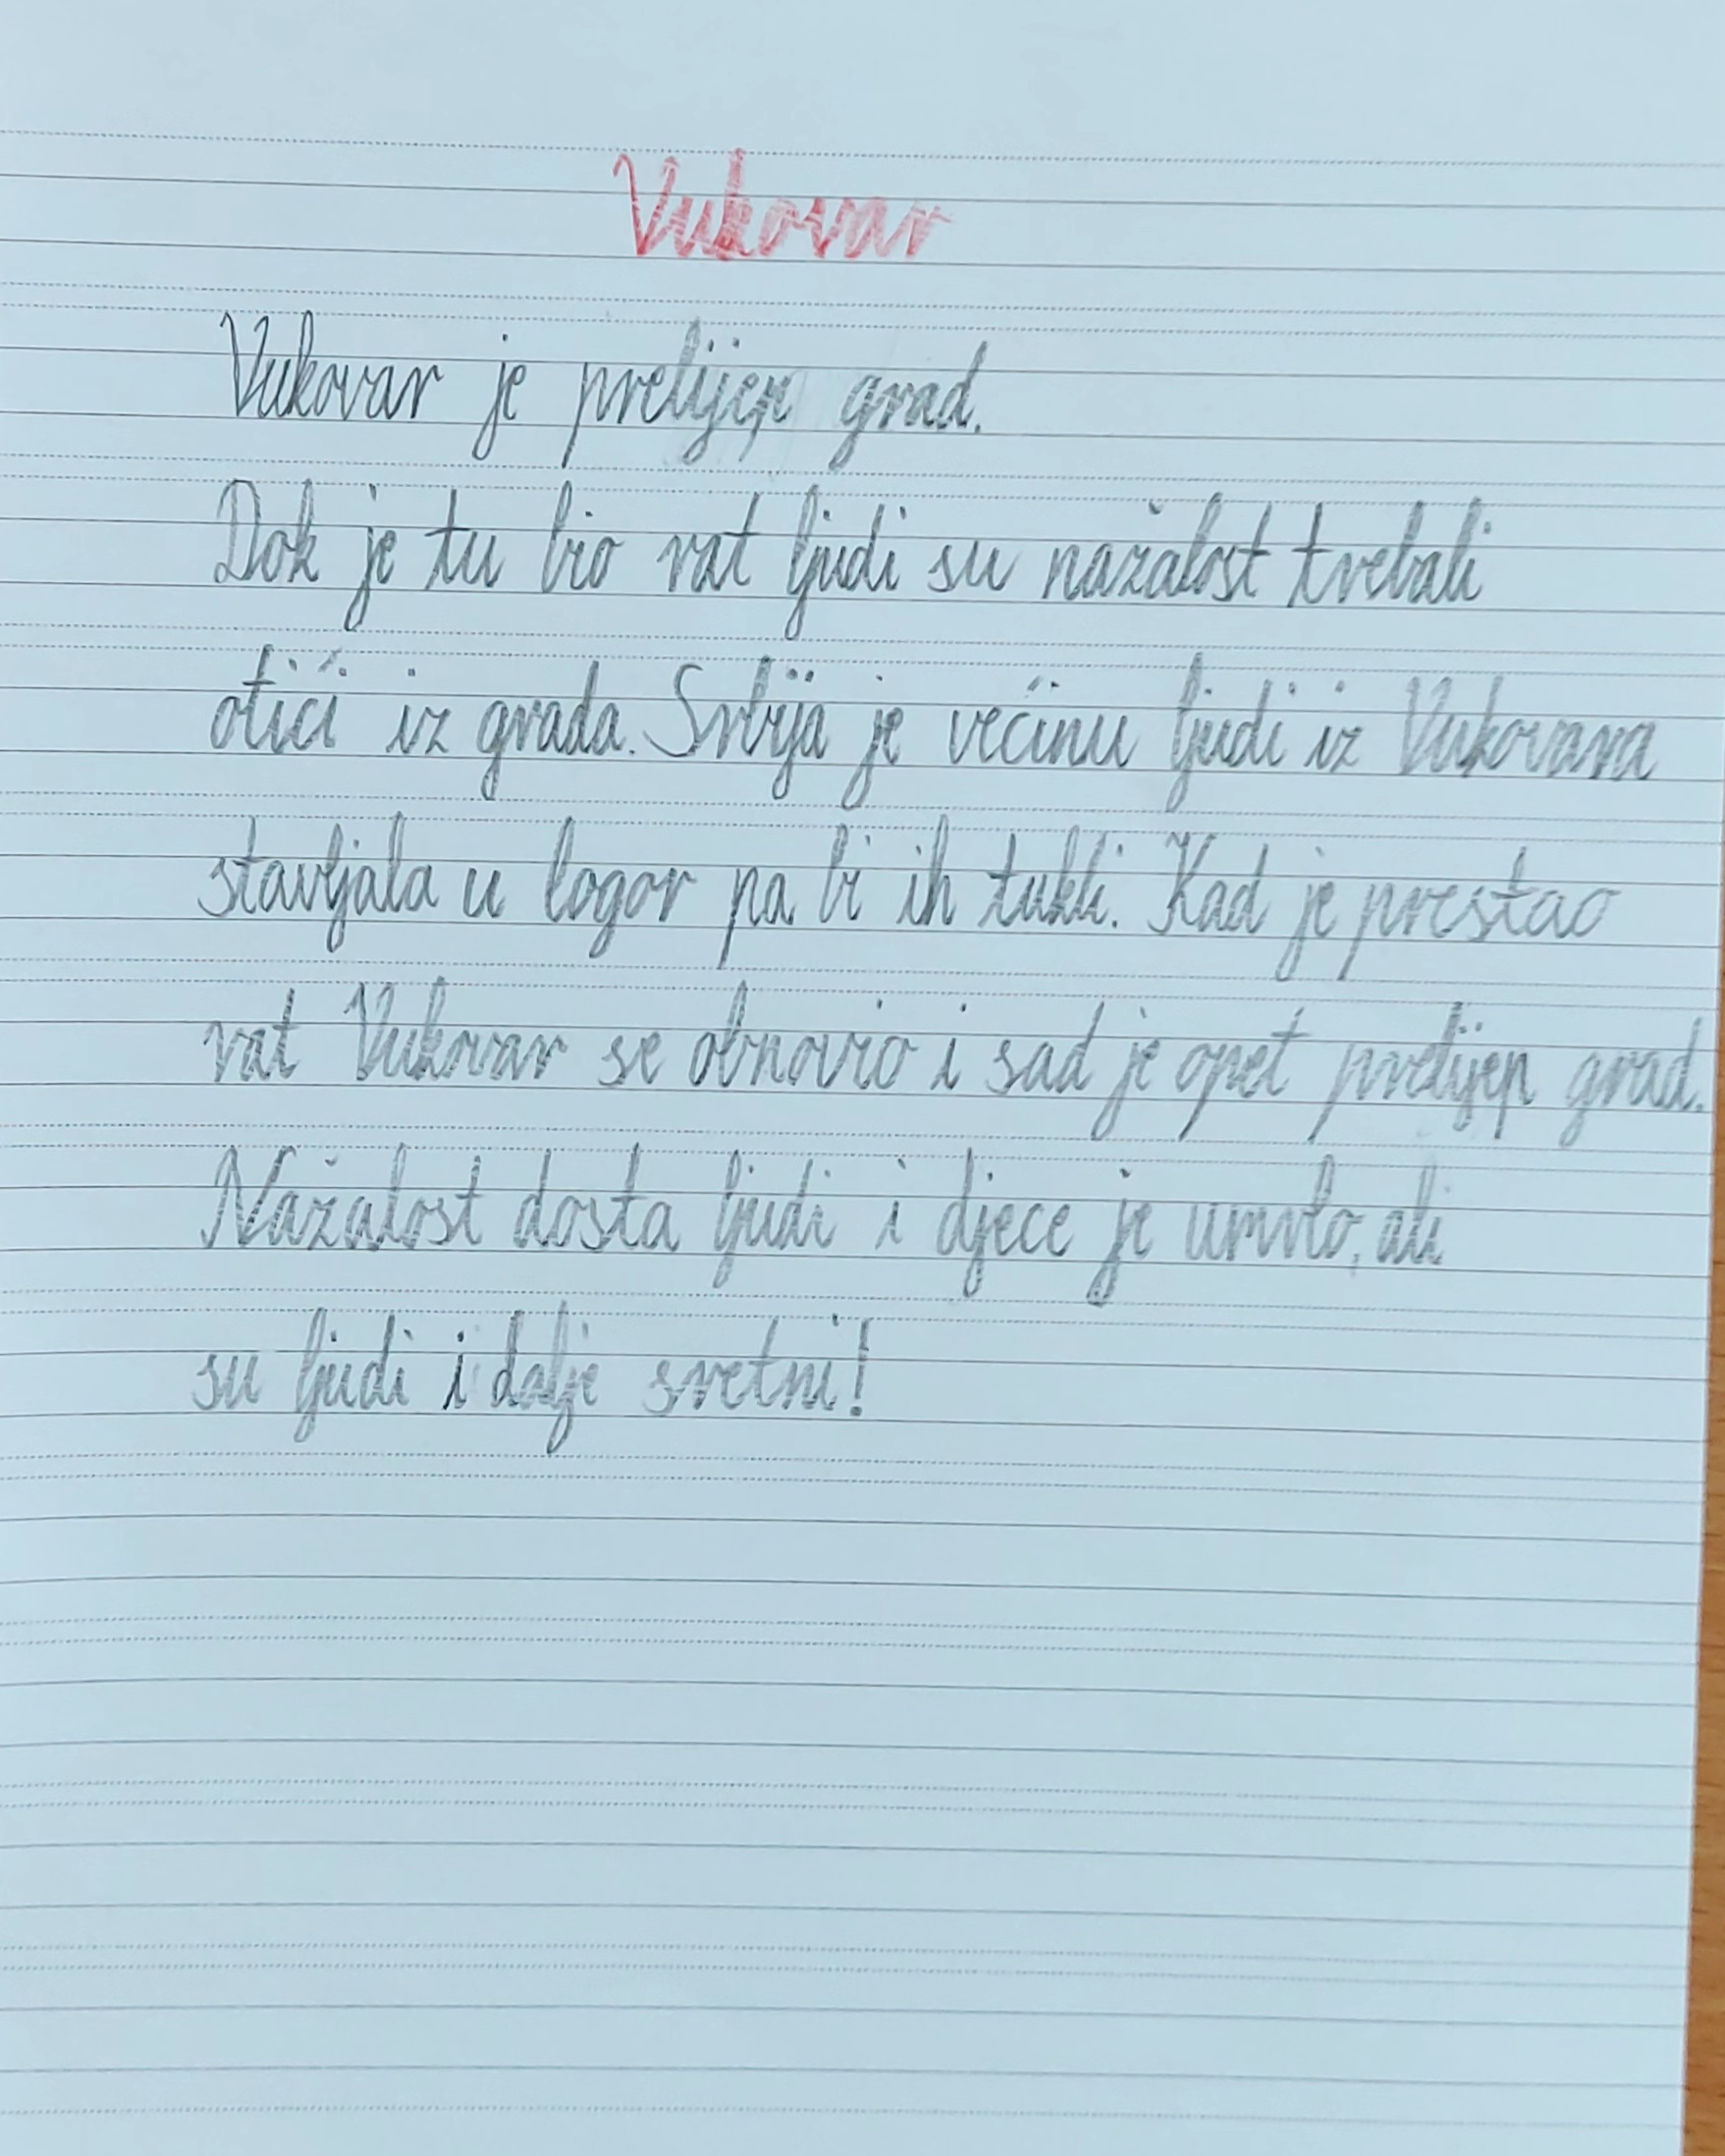 Vukovar
Vukovar je prelijep grad.
Dok je tu bio rat ljudi su nažalost trebali
otići iz grada. Srbija je većinu ljudi iz Vukovara
stavljala u logor pa bi ih tukli. Kad je prestao
rat Vukovar se obnovio i sad je opet prelijep grad.
Nažalost dosta ljudi i djece je umrlo, ali
su ljudi i dalje sretni!